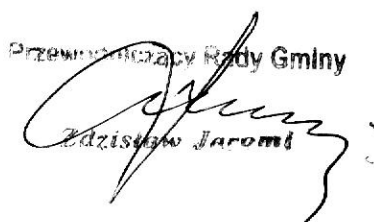 Przewodniczący Rady Gminy
Zdzisław Jaromi